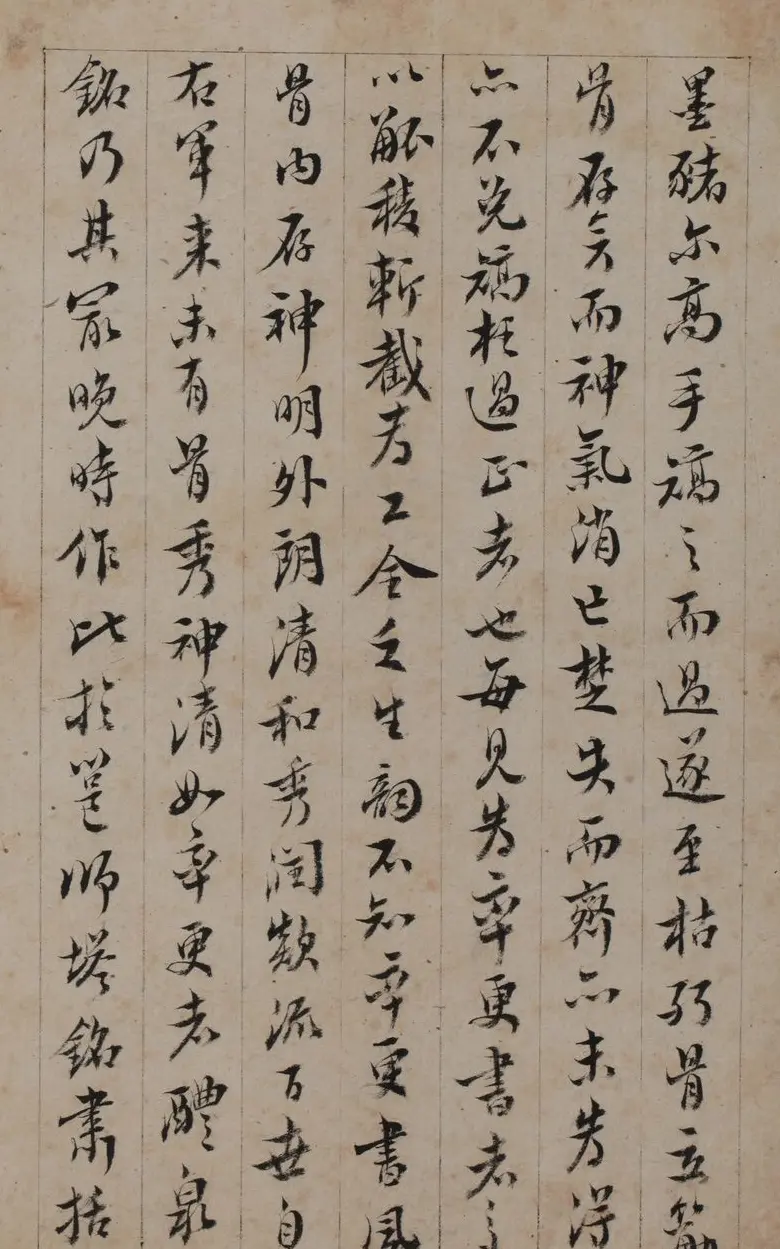 墨豬尔高手矯之而過遂至枯弱骨立筋
骨存矣而神氣消亡楚失而齊亦未為得
亦不免矯枉過正者也每見為率更書者
以觚稜斬截為工全乏生韵不知率更書風
骨内存神明外朗清和秀潤頫流百世自
右軍来未有骨秀神清如率更者醴泉
銘乃其最晚時作比於邕師塔銘肅括